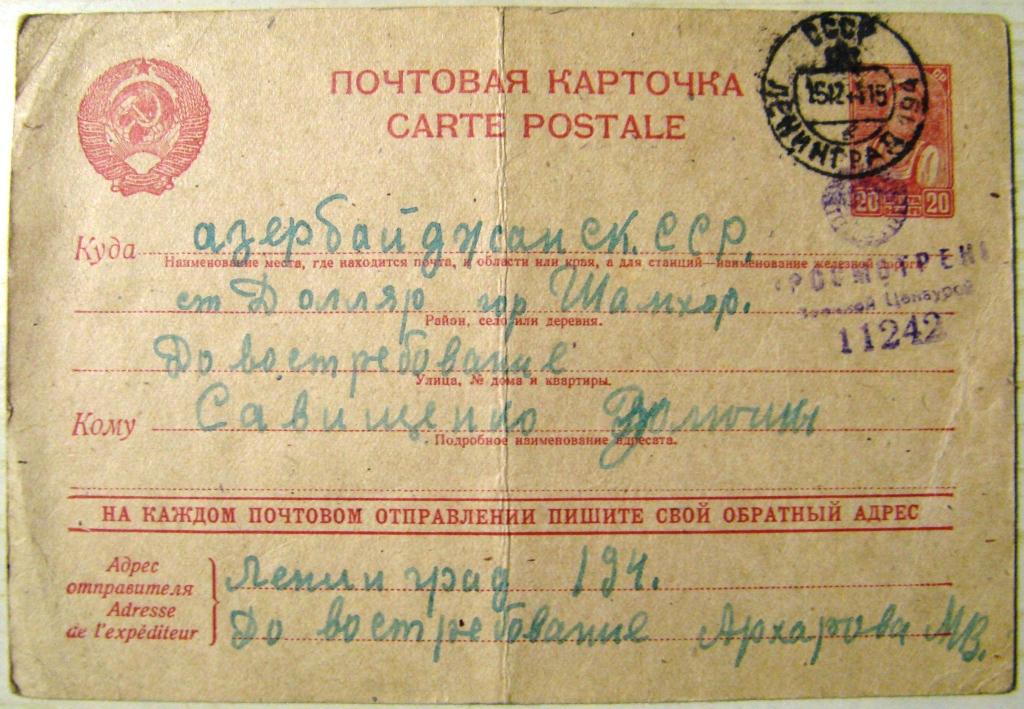 ПОЧТОВАЯ КАРТОЧКА
CARTE POSTALE
СССР
ЛЕНИНГРАД 194
20 20
ПРОСМОТРЕНО
Военной Цензурой
11242
Куда азербайджанск. ССР,
Наименование места, где находится почта, и области или края, а для станций—наименование железной дороги
ст Долляр гор Шамхор.
Район, село или деревня.
До востребование
Улица, № дома и квартиры.
Кому Савищенко
Подробное наименование адресата.
НА КАЖДОМ ПОЧТОВОМ ОТПРАВЛЕНИИ ПИШИТЕ СВОЙ ОБРАТНЫЙ АДРЕС
Адрес
отправителя
Adresse
de l'expéditeur
Ленинград 194.
До востребование Архарова МВ.